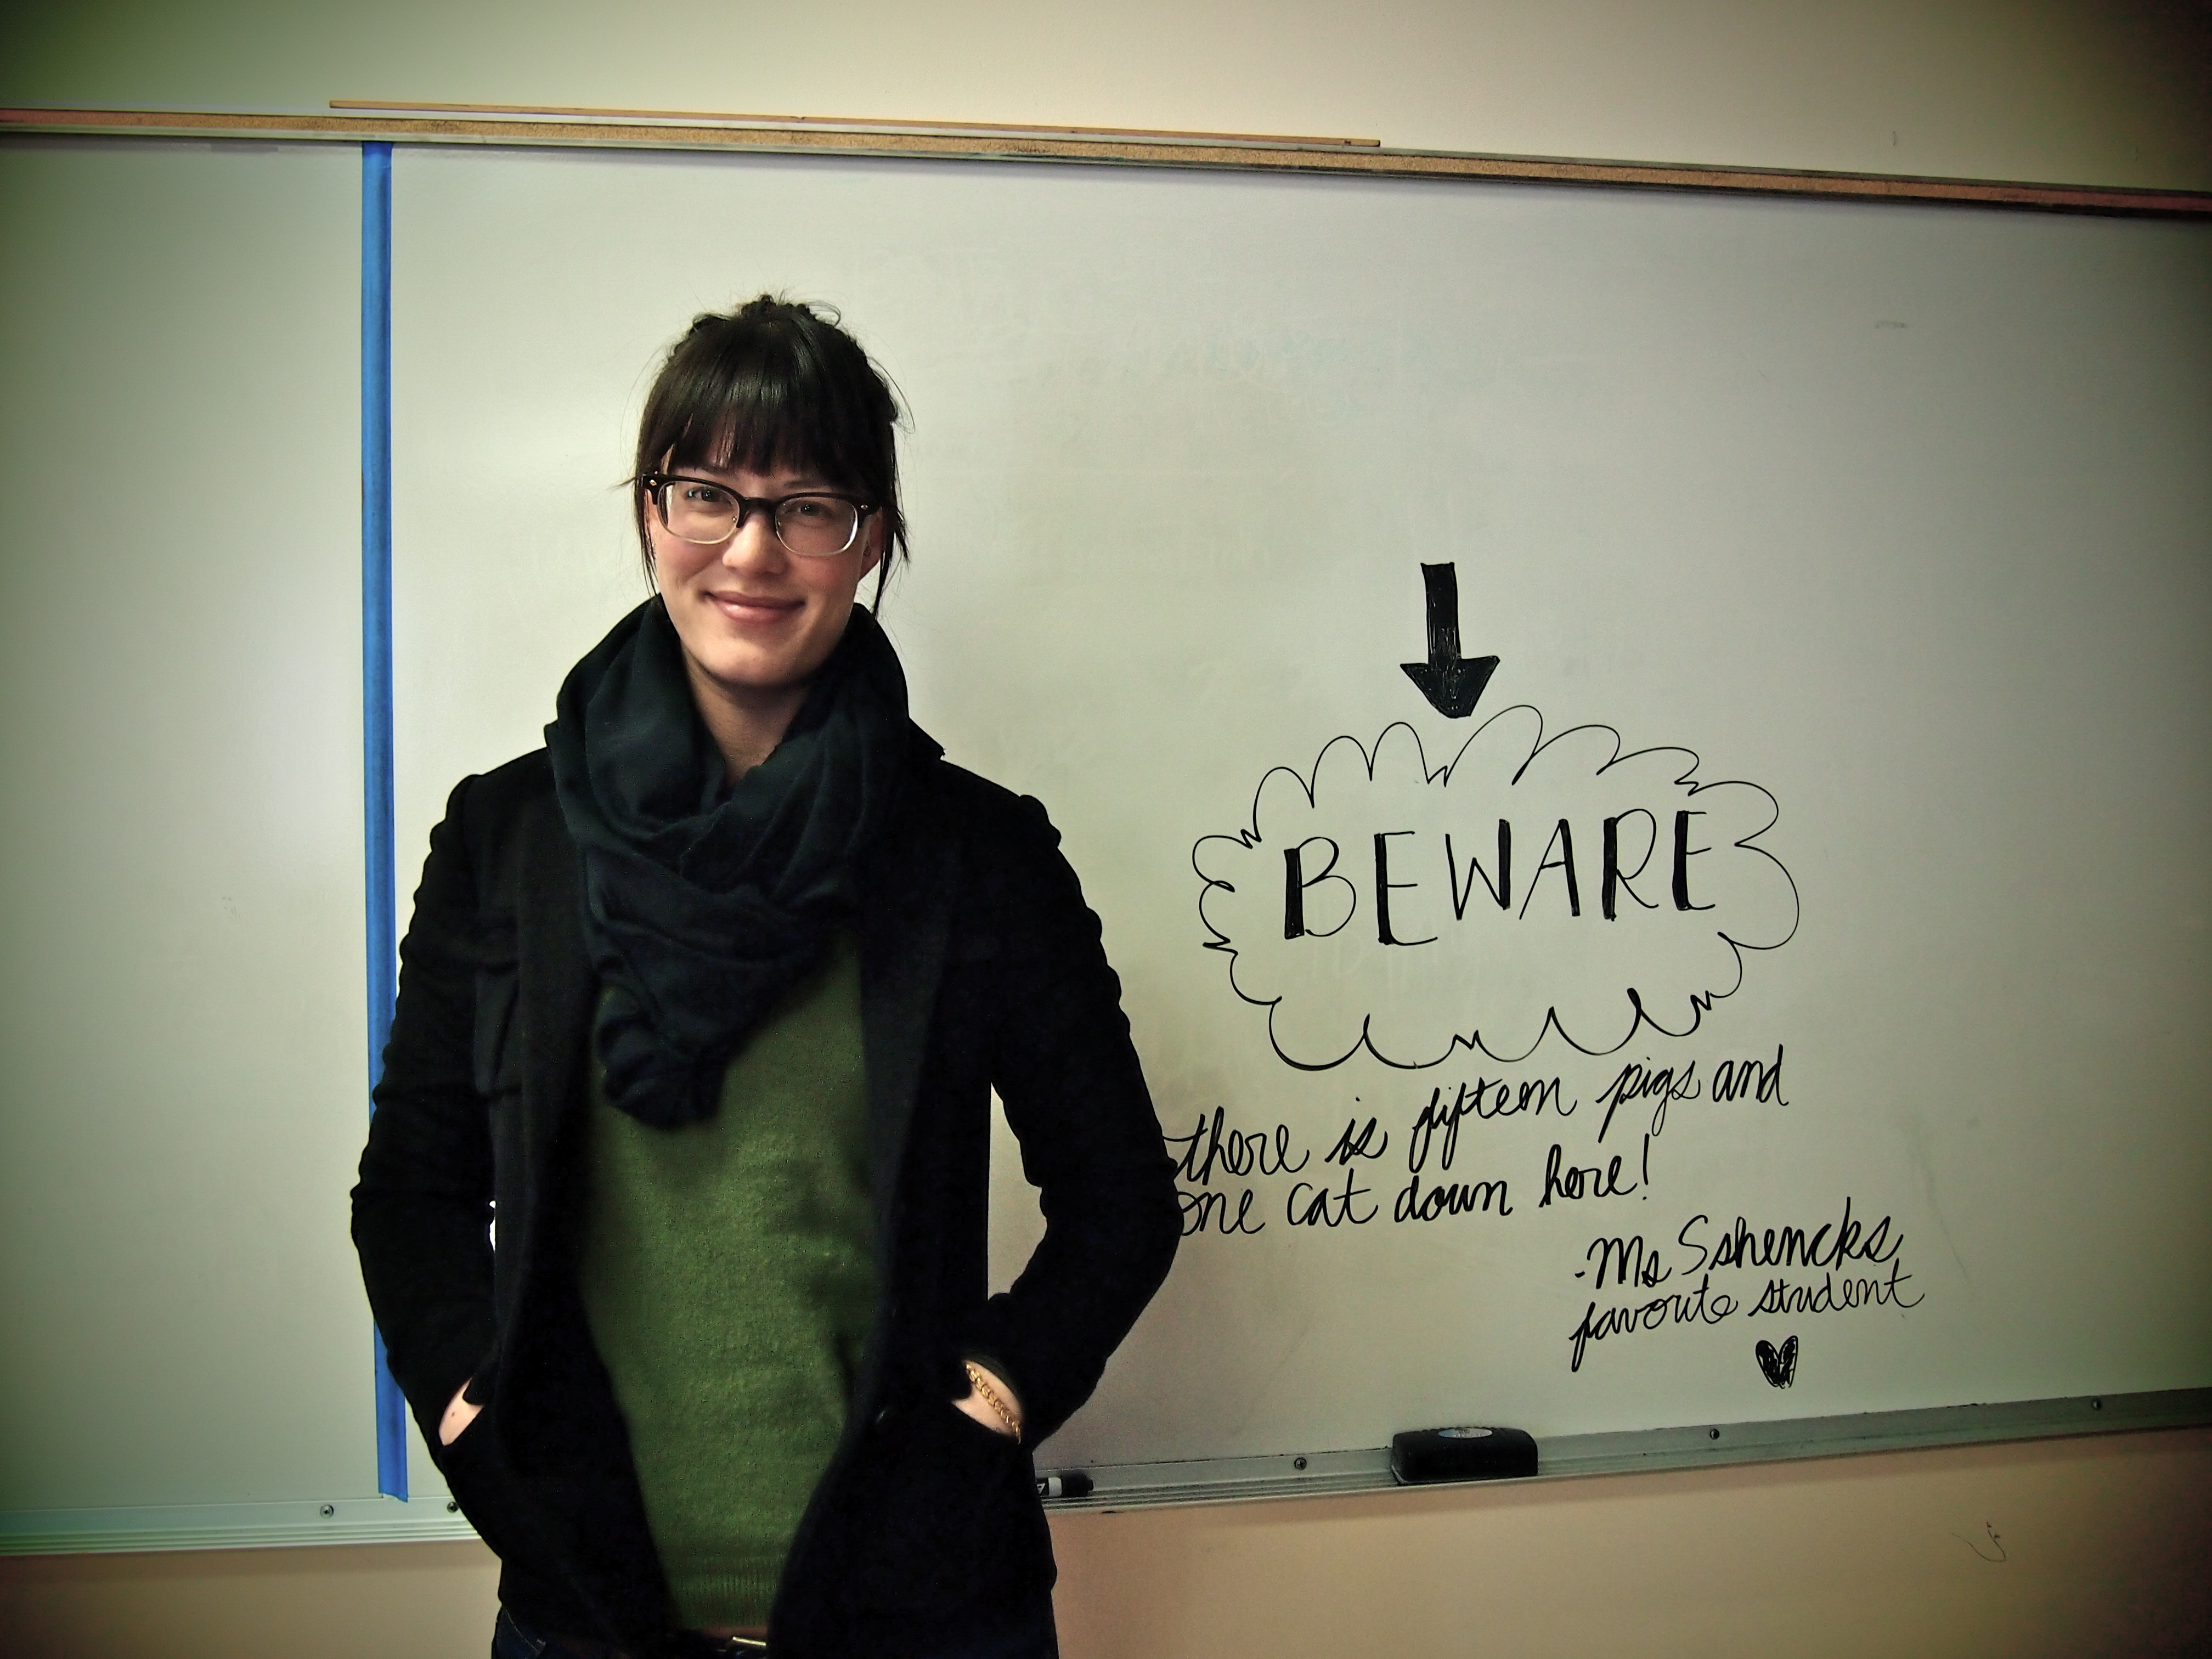 BEWARE
there is fifteen pigs and
one cat down here!
-Ms Sshencks
favorite student